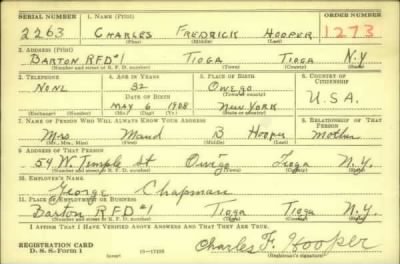 SERIAL NUMBER 1. NAME (Print) ORDER NUMBER
2263 CHARLES FREDRICK HOOPER 1273
(First) (Middle) (Last)
2. ADDRESS (Print)
BARTON RFD#1 TIOGA TIOGA N.Y
(Number and street or R. F. D. number) (Town) (County) (State)
3. TELEPHONE 4. AGE IN YEARS 5. PLACE OF BIRTH 6. COUNTRY OF CITIZENSHIP
NONE 32 OWEGO
DATE OF BIRTH (Town or county) U.S.A.
MAY 6 1908 NEW YORK
(Exchange) (No.) (Mo.) (Day) (Yr.) (State or country)
7. NAME OF PERSON WHO WILL ALWAYS KNOW YOUR ADDRESS 8. RELATIONSHIP OF THAT PERSON
Mrs Maud B Hooper Mother
(Mr., Mrs., Miss) (First) (Middle) (Last)
9. ADDRESS OF THAT PERSON
54 W. Temple St Owego Tioga N.Y.
(Number and street or R. F. D. number) (Town) (County) (State)
10. EMPLOYER'S NAME
George Chapman
11. PLACE OF EMPLOYMENT OR BUSINESS
Barton RFD #1 Tioga Tioga N.Y.
(Number and street or R. F. D. number) (Town) (County) (State)
I AFFIRM THAT I HAVE VERIFIED ABOVE ANSWERS AND THAT THEY ARE TRUE.
REGISTRATION CARD Charles F. Hooper
D. S. S. Form 1 (over) (Registrant's signature)